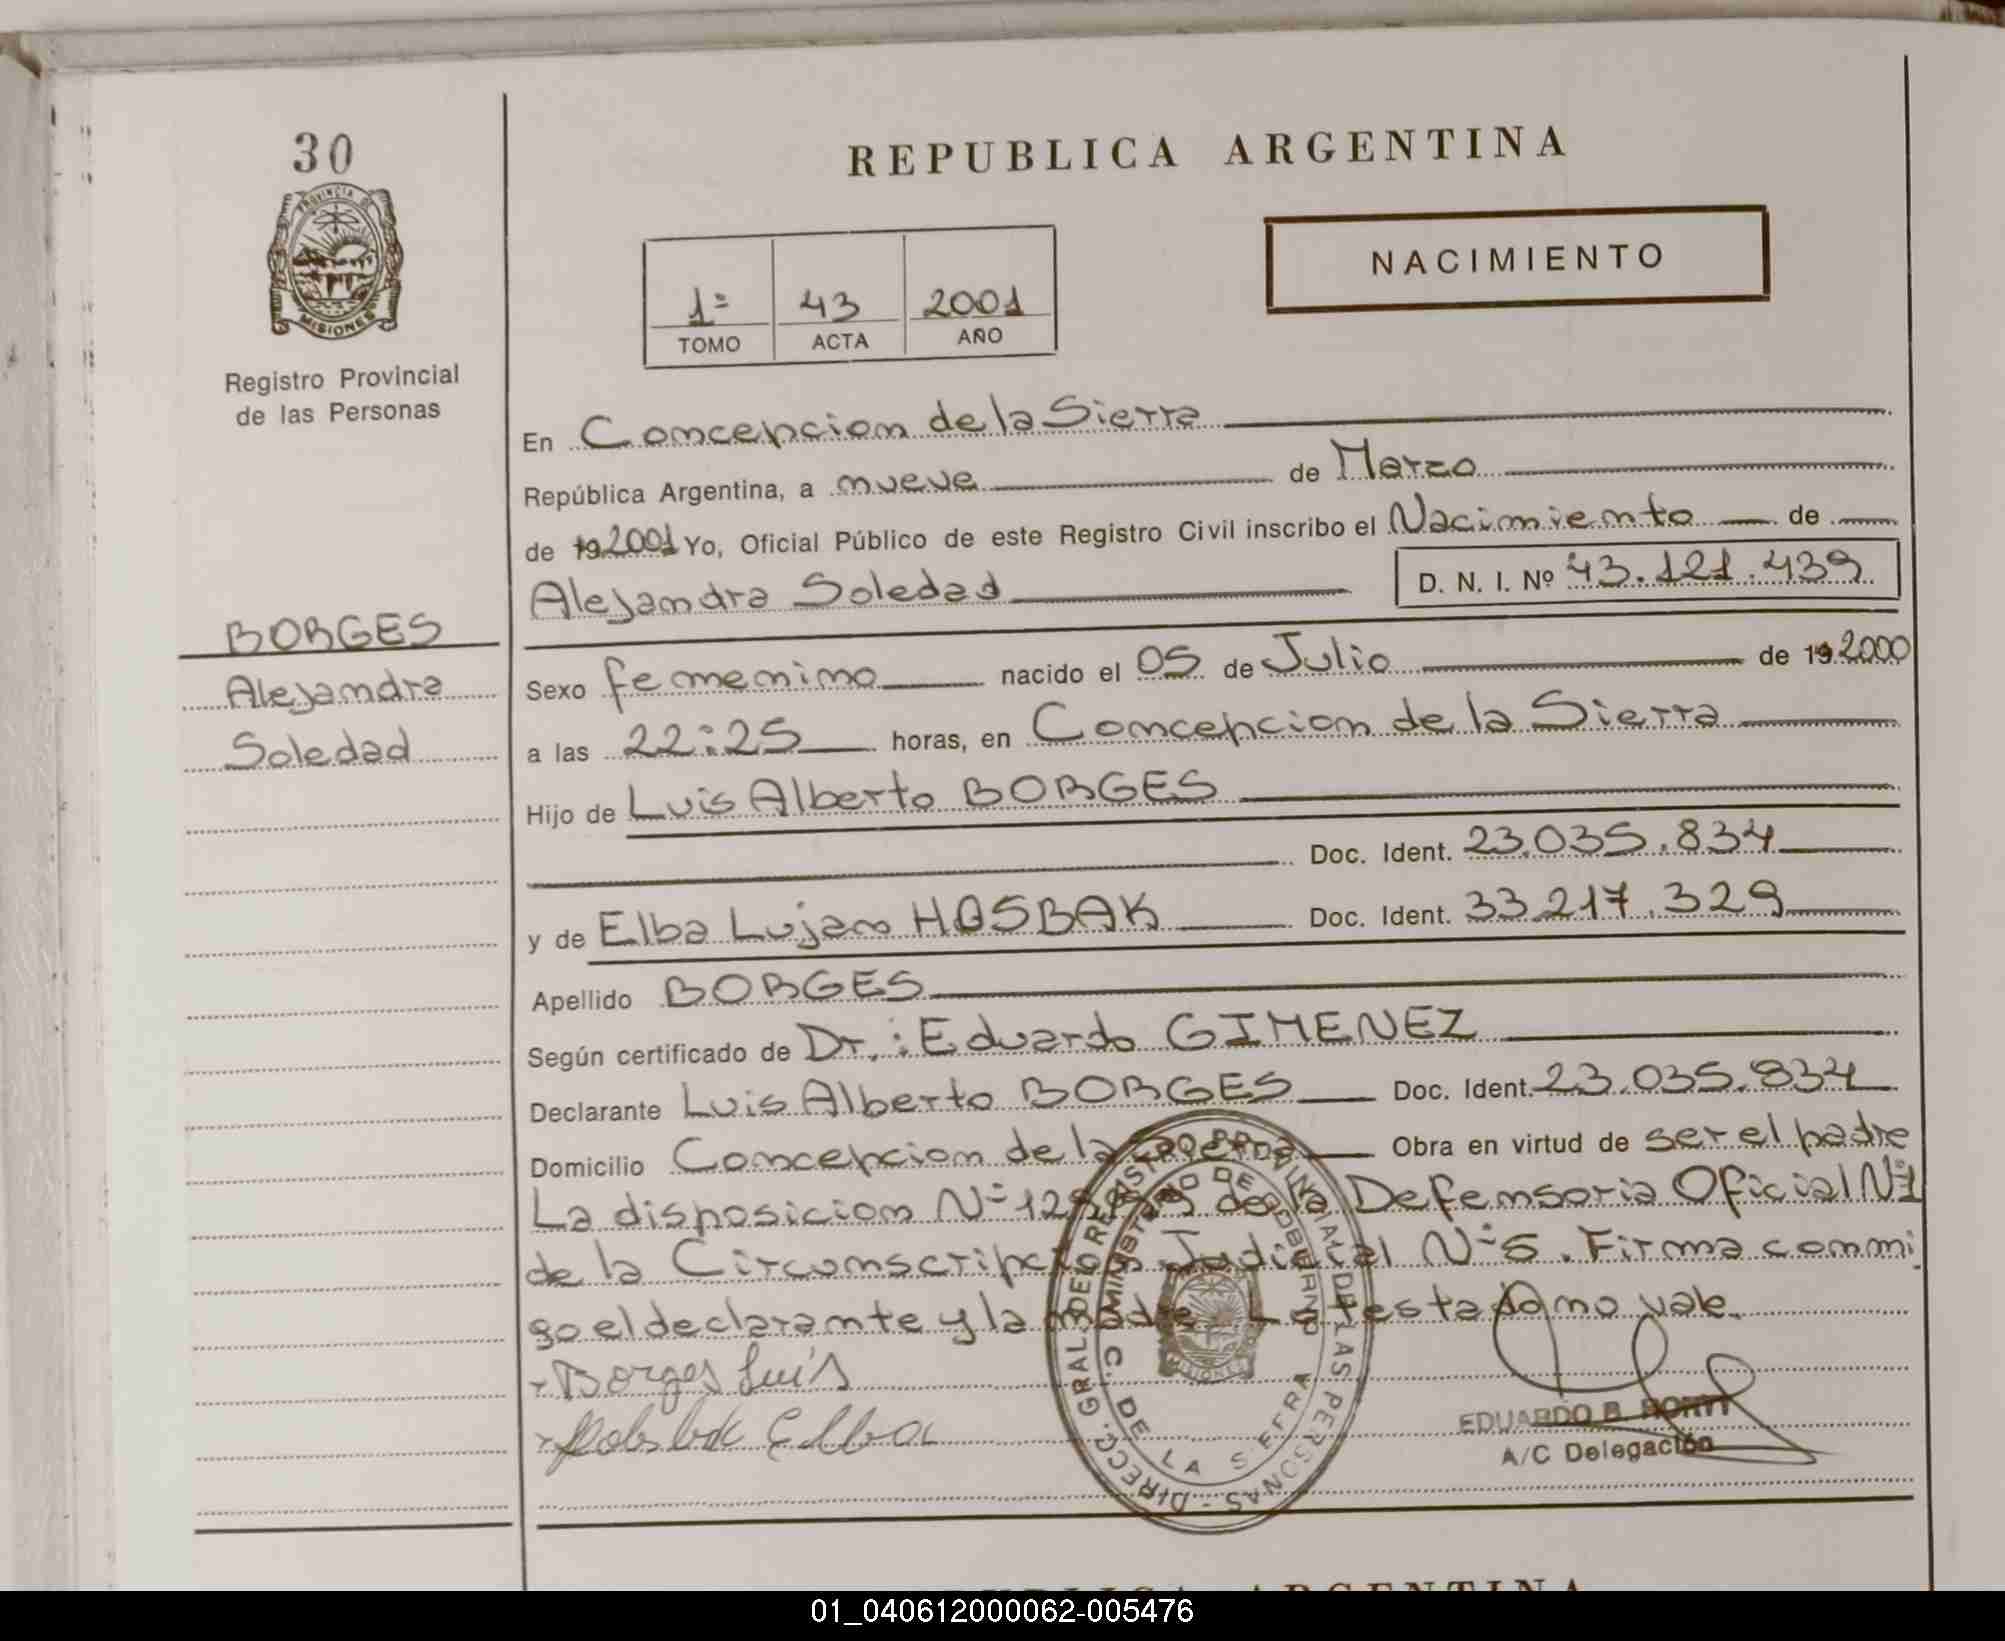 30
PROVINCIA DE
MISIONES
Registro Provincial
de las Personas
REPUBLICA ARGENTINA
NACIMIENTO
1º 43 2001
TOMO ACTA AÑO
En Concepcion de la Sierra
República Argentina, a nueve de Marzo
de 19 2001 Yo, Oficial Público de este Registro Civil inscribo el Nacimiento de
Alejandra Soledad D. N. I. Nº 43.121.439
BORGES
Alejandra
Soledad
Sexo femenino nacido el 05 de Julio de 19 2000
a las 22:25 horas, en Concepcion de la Sierra
Hijo de Luis Alberto BORGES
Doc. Ident. 23.035.834
y de Elba Lujan HOSBAK Doc. Ident. 33.217.329
Apellido BORGES
Según certificado de Dr.: Eduardo GIMENEZ
Declarante Luis Alberto BORGES Doc. Ident. 23.035.834
Domicilio Concepcion de la Sierra Obra en virtud de ser el padre
La disposicion Nº de la Defensoria Oficial Nº1
de la Circunscripcion Judicial Nº 5. Firma conmi
go el declarante y la madre. Lo testado no vale.
Borges Luis
Elba
DIRECC. GRAL. DEL REGISTRO PROVINCIAL DE LAS PERSONAS
MINISTERIO DE GOBIERNO
C. DE LA SIERRA
EDUARDO B.
A/C Delegación
REPUBLICA ARGENTINA
01_040612000062-005476